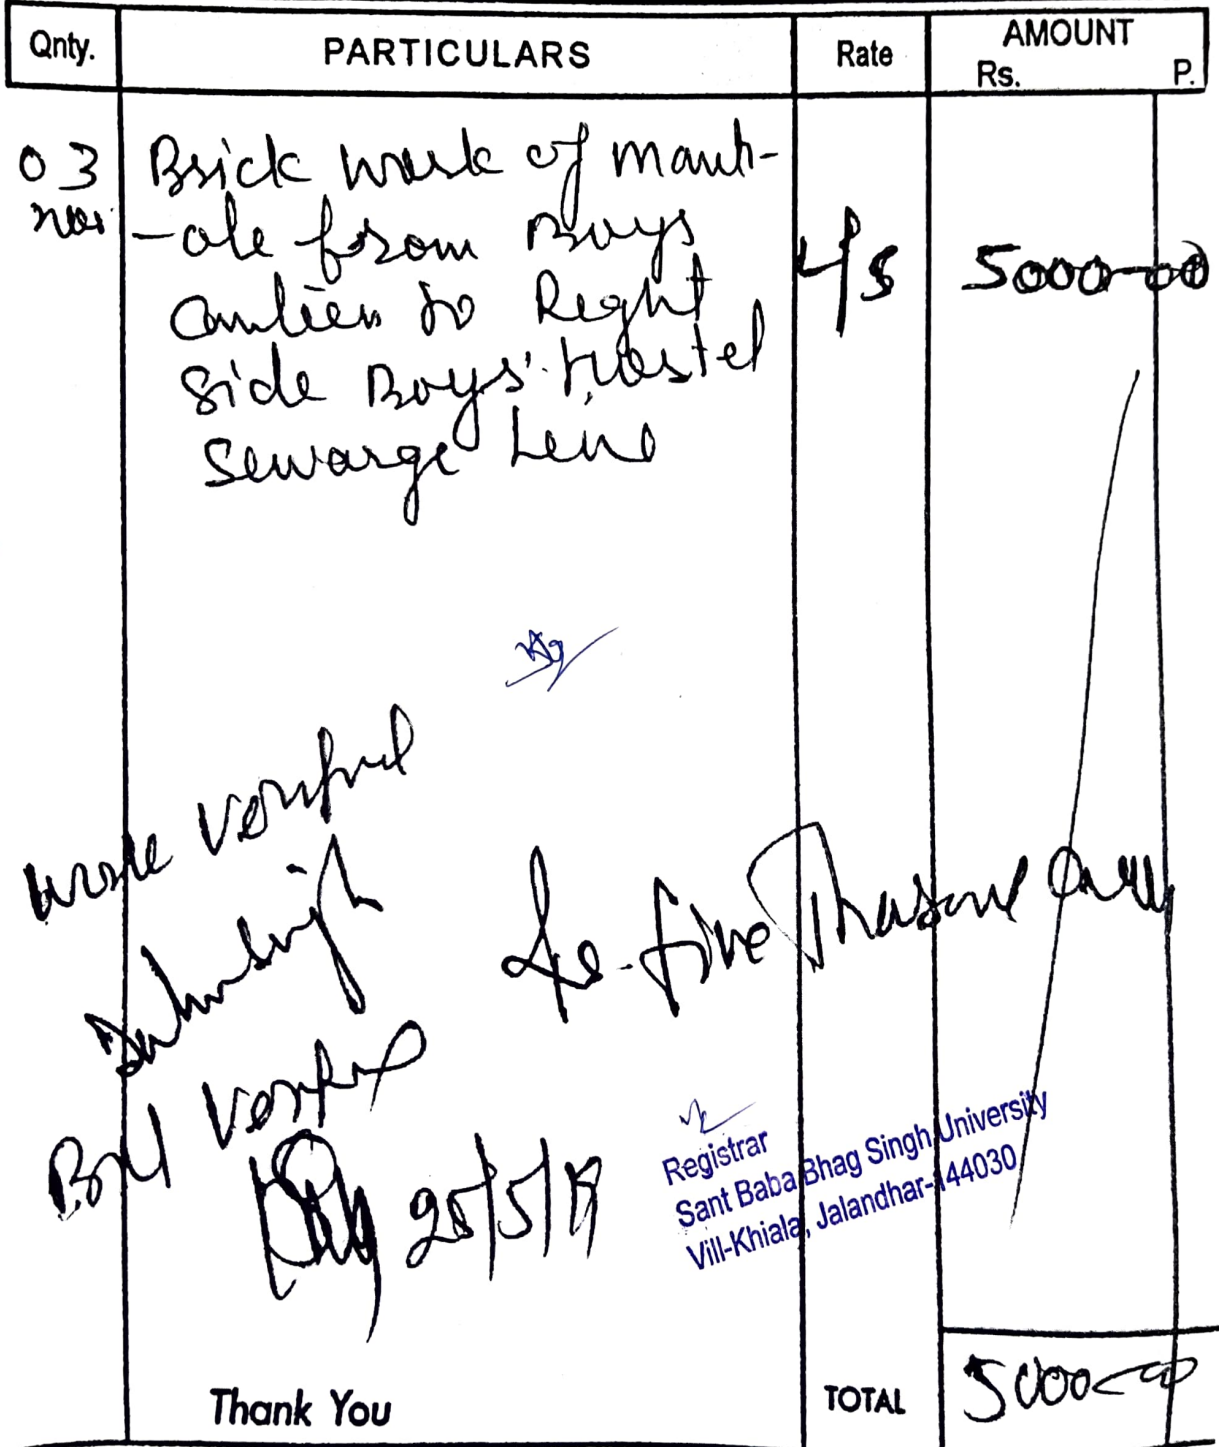 Qnty. PARTICULARS Rate AMOUNT
Rs. P.
03 Brick work of manh-
nos -ole from Boys
L/S 5000-00
Canteen to Right
Side Boys' Hostel
Sewarge Line
work verified
Rs. Five Thousand Only
Bill Verified
25/5/19
Registrar
Sant Baba Bhag Singh University
Vill-Khiala, Jalandhar-144030
Thank You TOTAL 5000-00